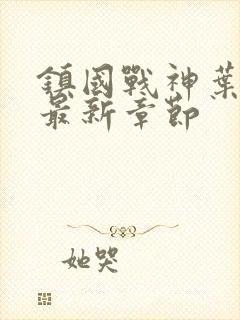 鎮國戰神葉
最新章節
她哭